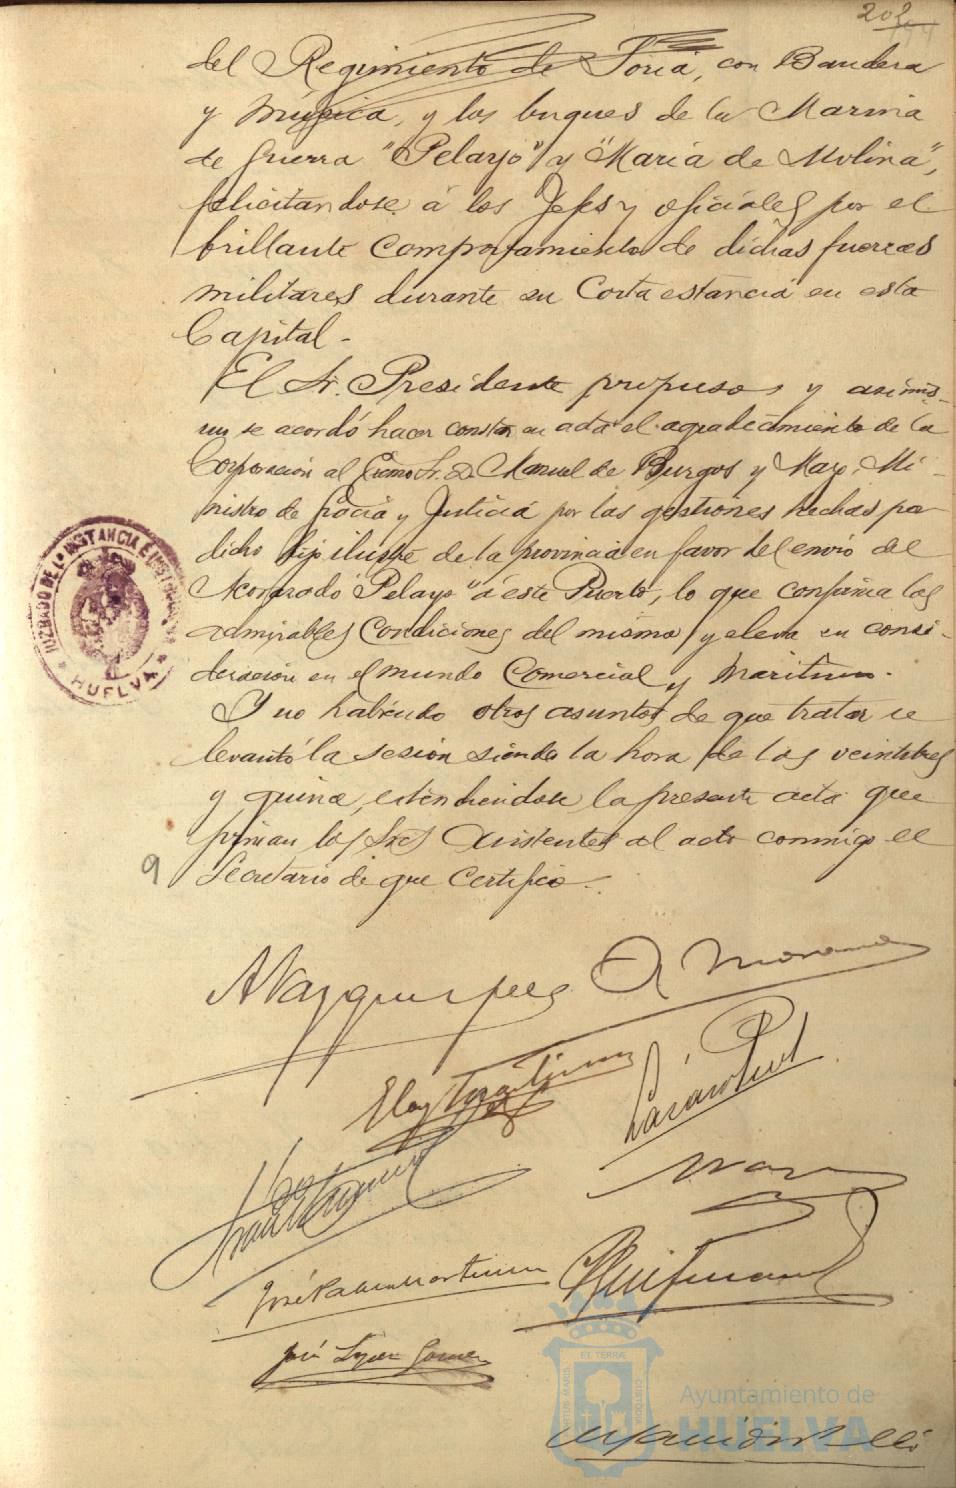 202
del Regimiento de Soria, con Bandera
y música, y los buques de la Marina
de Guerra "Pelayo" y "María de Molina",
felicitandose á los Jefes y oficiales por el
brillante comportamiento de dichas fuerzas
militares durante su corta estancia en esta
Capital.-
El Sr. Presidente propuso, y asimis-
mo se acordó hacer constar en acta el agradecimiento de la
Corporación al Excmo Sr. D. Manuel de Burgos y Mazo, Mi-
nistro de Gracia y Justicia por las gestiones hechas por
dicho hijo ilustre de la provincia en favor del envío del
Acorazado "Pelayo" á este Puerto, lo que confirma las
admirables condiciones del mismo y eleva su consi-
deración en el mundo Comercial y Maritimo.
Y no habiendo otros asuntos de que tratar se
levantó la sesión siendo la hora de las veintitres
y quince, extendiendose la presente acta que
firman los Sres Asistentes al acto conmigo el
Secretario de que certifico.-
9
JUZGADO DE 1ª INSTANCIA E INSTRUCCION
* HUELVA *
A Vazquez Perez
Eloy
Lázaro
José
José López Gómez
ET TERRÆ
PORTUS MARIS
CUSTODIA
Ayuntamiento de
HUELVA